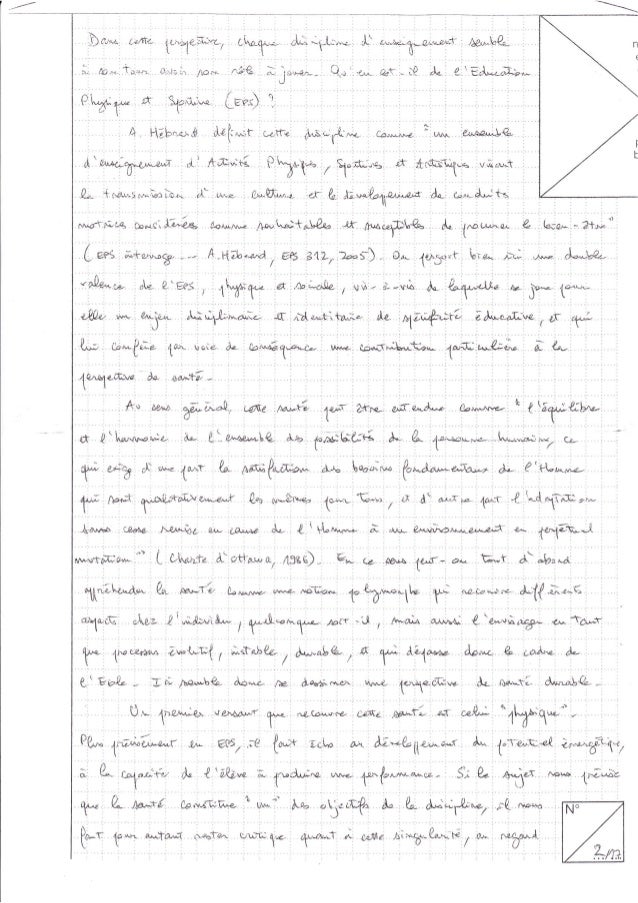 Dans cette perspective, chaque discipline d'enseignement semble
à son tour avoir son rôle à jouer. Qu'en est-il de l'Education
Physique et Sportive (EPS) ?
A. Hébrard définit cette discipline comme "un ensemble
d'enseignement d'Activités Physiques, Sportives et Artistiques visant
la transmission d'une culture et le développement de conduites
motrices considérées comme souhaitables et susceptibles de procurer le bien-être"
(EPS interroge... A. Hébrard, EPS 312, 2005). On perçoit bien ici une double
valence de l'EPS, physique et sociale, vis-à-vis de laquelle se joue pour
elle un enjeu disciplinaire et identitaire de spécificité éducative, et qui
lui confère par voie de conséquence une contribution particulière à la
perspective de santé.
Au sens général, cette santé peut être entendue comme "l'équilibre
et l'harmonie de l'ensemble des possibilités de la personne humaine, ce
qui exige d'une part la satisfaction des besoins fondamentaux de l'Homme
qui sont qualitativement les mêmes pour tous, et d'autre part l'adaptation
sans cesse remise en cause de l'Homme à un environnement en perpétuel
mutation" (Charte d'Ottawa, 1986). En ce sens peut-on tout d'abord
appréhender la santé comme une notion polymorphe qui recouvre différents
aspects chez l'individu, quelconque soit-il, mais aussi l'envisager en tant
que processus évolutif, instable, durable, et qui dépasse donc le cadre de
l'Ecole. Ici semble donc se dessiner une perspective de santé durable.
Un premier versant que recouvre cette santé est celui "physique".
Plus précisément en EPS, il fait écho au développement du potentiel énergétique,
à la capacité de l'élève à produire une performance. Si le sujet nous précise
que la santé constitue "un" des objectifs de la discipline, il nous
faut pour autant rester critique quant à cette singularité, au regard
N°
2/17